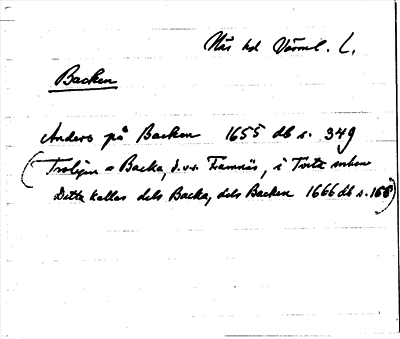 Näs hd Värml. L.
Backen
Anders på Backen 1655 db s. 349
(Troligen = Backa, d.v.s. Framnäs, i Tveta sn
Detta kallas dels Backa, dels Backen 1666 db s. 168)